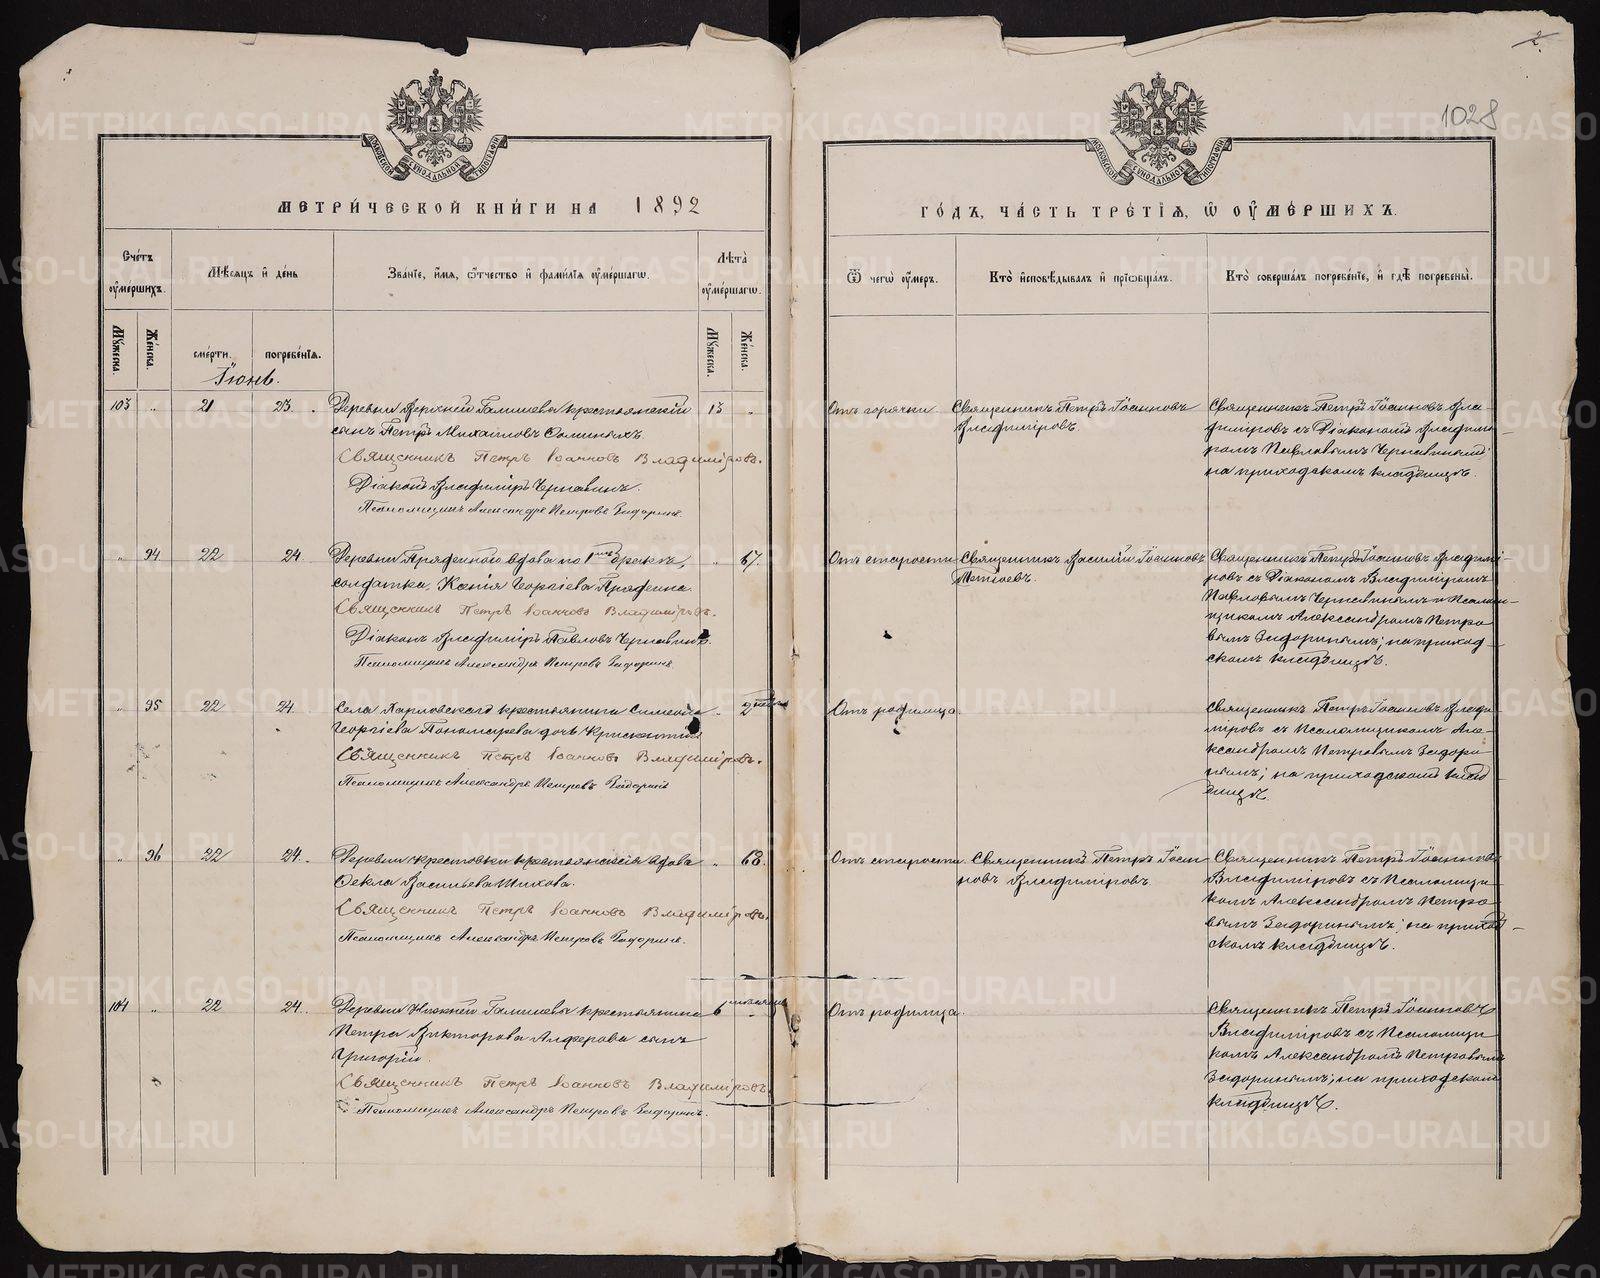 2.
1028
МОСКОВСКОЙ СѴНОДАЛЬНОЙ ТИПОГРАФІИ
МОСКОВСКОЙ СѴНОДАЛЬНОЙ ТИПОГРАФІИ
МЕТРИ́ЧЕСКОЙ КНИ́ГИ НА 1892
ГО́ДЪ, ЧА́СТЬ ТРЕ́ТІѦ, Ѿ ОУ҆МЕ́РШИХЪ.
Сче́тъ оу҆ме́ршихъ.
Мѣ́сѧцъ и҆ де́нь
Зва́ніе, и҆́мѧ, ѻ҆́тчество и҆ фами́лїѧ оу҆ме́ршагѡ.
Лѣ́та оу҆ме́ршагѡ.
Ѿ чегѡ̀ оу҆́меръ.
Кто̀ и҆сповѣ́дывалъ и҆ прїѡбща́лъ.
Кто̀ соверша́лъ погребе́ніе, и҆ гдѣ̀ погребены̀.
Мꙋ́жеска.
Же́нска.
сме́рти.
погребе́нїѧ.
Мꙋ́жеска.
Же́нска.
Іюнь.
103 " 21 23.
Деревни Верхней Галишевы крестьянскій
сынъ Петръ Михаиловъ
Священникъ Петръ Іоанновъ Владиміровъ.
Діаконъ Владиміръ Чернавинъ.
Псаломщикъ Александръ Петровъ Задоринъ.
13 "
Отъ горячки
Священникъ Петръ Іоанновъ
Владиміровъ.
Священникъ Петръ Іоанновъ Вла-
диміровъ съ Діакономъ Владими-
ромъ Павловымъ Чернавинымъ
на приходскомъ кладбищѣ.
" 94 22 24.
Деревни Прядеиной вдова по 1му браку,
солдатка, Ксенія Георгіева Прядеина.
Священникъ Петръ Іоанновъ Владиміровъ.
Діаконъ Владиміръ Павловъ Чернавинъ.
Псаломщикъ Александръ Петровъ Задоринъ.
" 67.
Отъ старости
Священникъ Василій Іоанновъ
Священникъ Петръ Іоанновъ Владимі-
ровъ съ Діакономъ Владиміромъ
Павловымъ Чернавинымъ и Псалом-
щикомъ Александромъ Петро
вымъ Задоринымъ; на приход-
скомъ кладбищѣ.
" 95 22 24.
Села крестьянина Симеона
Георгіева Пономарева дочь
Священникъ Петръ Іоанновъ Владиміровъ.
Псаломщикъ Александръ Петровъ Задоринъ
" 2
Отъ родимца.
Священникъ Петръ Іоанновъ Влади
міровъ съ Псаломщикомъ Але-
ксандромъ Петровымъ Задори
нымъ; на приходскомъ клад
бищѣ.
" 96 22 24.
Деревни Крестовки крестьянская вдова
Ѳекла Васильева
Священникъ Петръ Іоанновъ Владиміровъ.
Псаломщикъ Александръ Петровъ Задоринъ.
" 68.
Отъ старости.
Священникъ Петръ Іоан
новъ Владиміровъ.
Священникъ Петръ Іоанновъ
Владиміровъ съ Псаломщи
комъ Александромъ Петро
вымъ Задоринымъ; на приход-
скомъ кладбищѣ.
104 " 22 24.
Деревни Нижней Галишевы крестьянина
Петра Викторова Алферова сынъ
Григорій.
Священникъ Петръ Іоанновъ Владиміровъ.
Псаломщикъ Александръ Петровъ Задоринъ.
6 "
Отъ родимца.
Священникъ Петръ Іоанновъ
Владиміровъ съ Псаломщи
комъ Александромъ Петровымъ
Задоринымъ; на приходскомъ
кладбищѣ.
METRIKI.GASO-URAL.RU